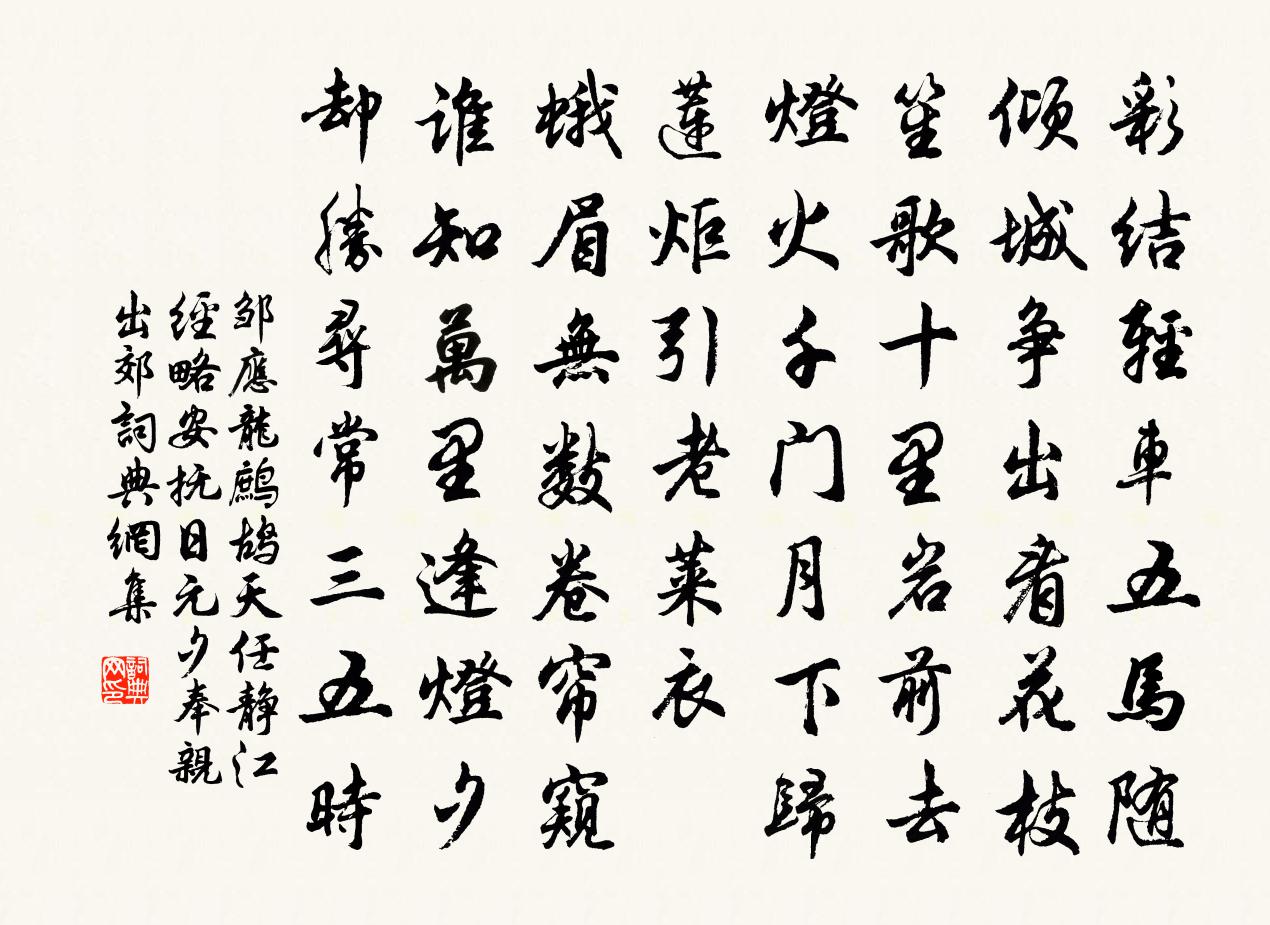 彩结輕車五馬随
倾城争出看花枝
笙歌十里岩前去
燈火千门月下歸
蓮炬引老莱衣
蛾眉無数卷帘窺
谁知萬里逢燈夕
却勝尋常三五時
邹應龍鷓鸪天任静江
經略安抚日元夕奉親
出郊詞典網集
詞典网印